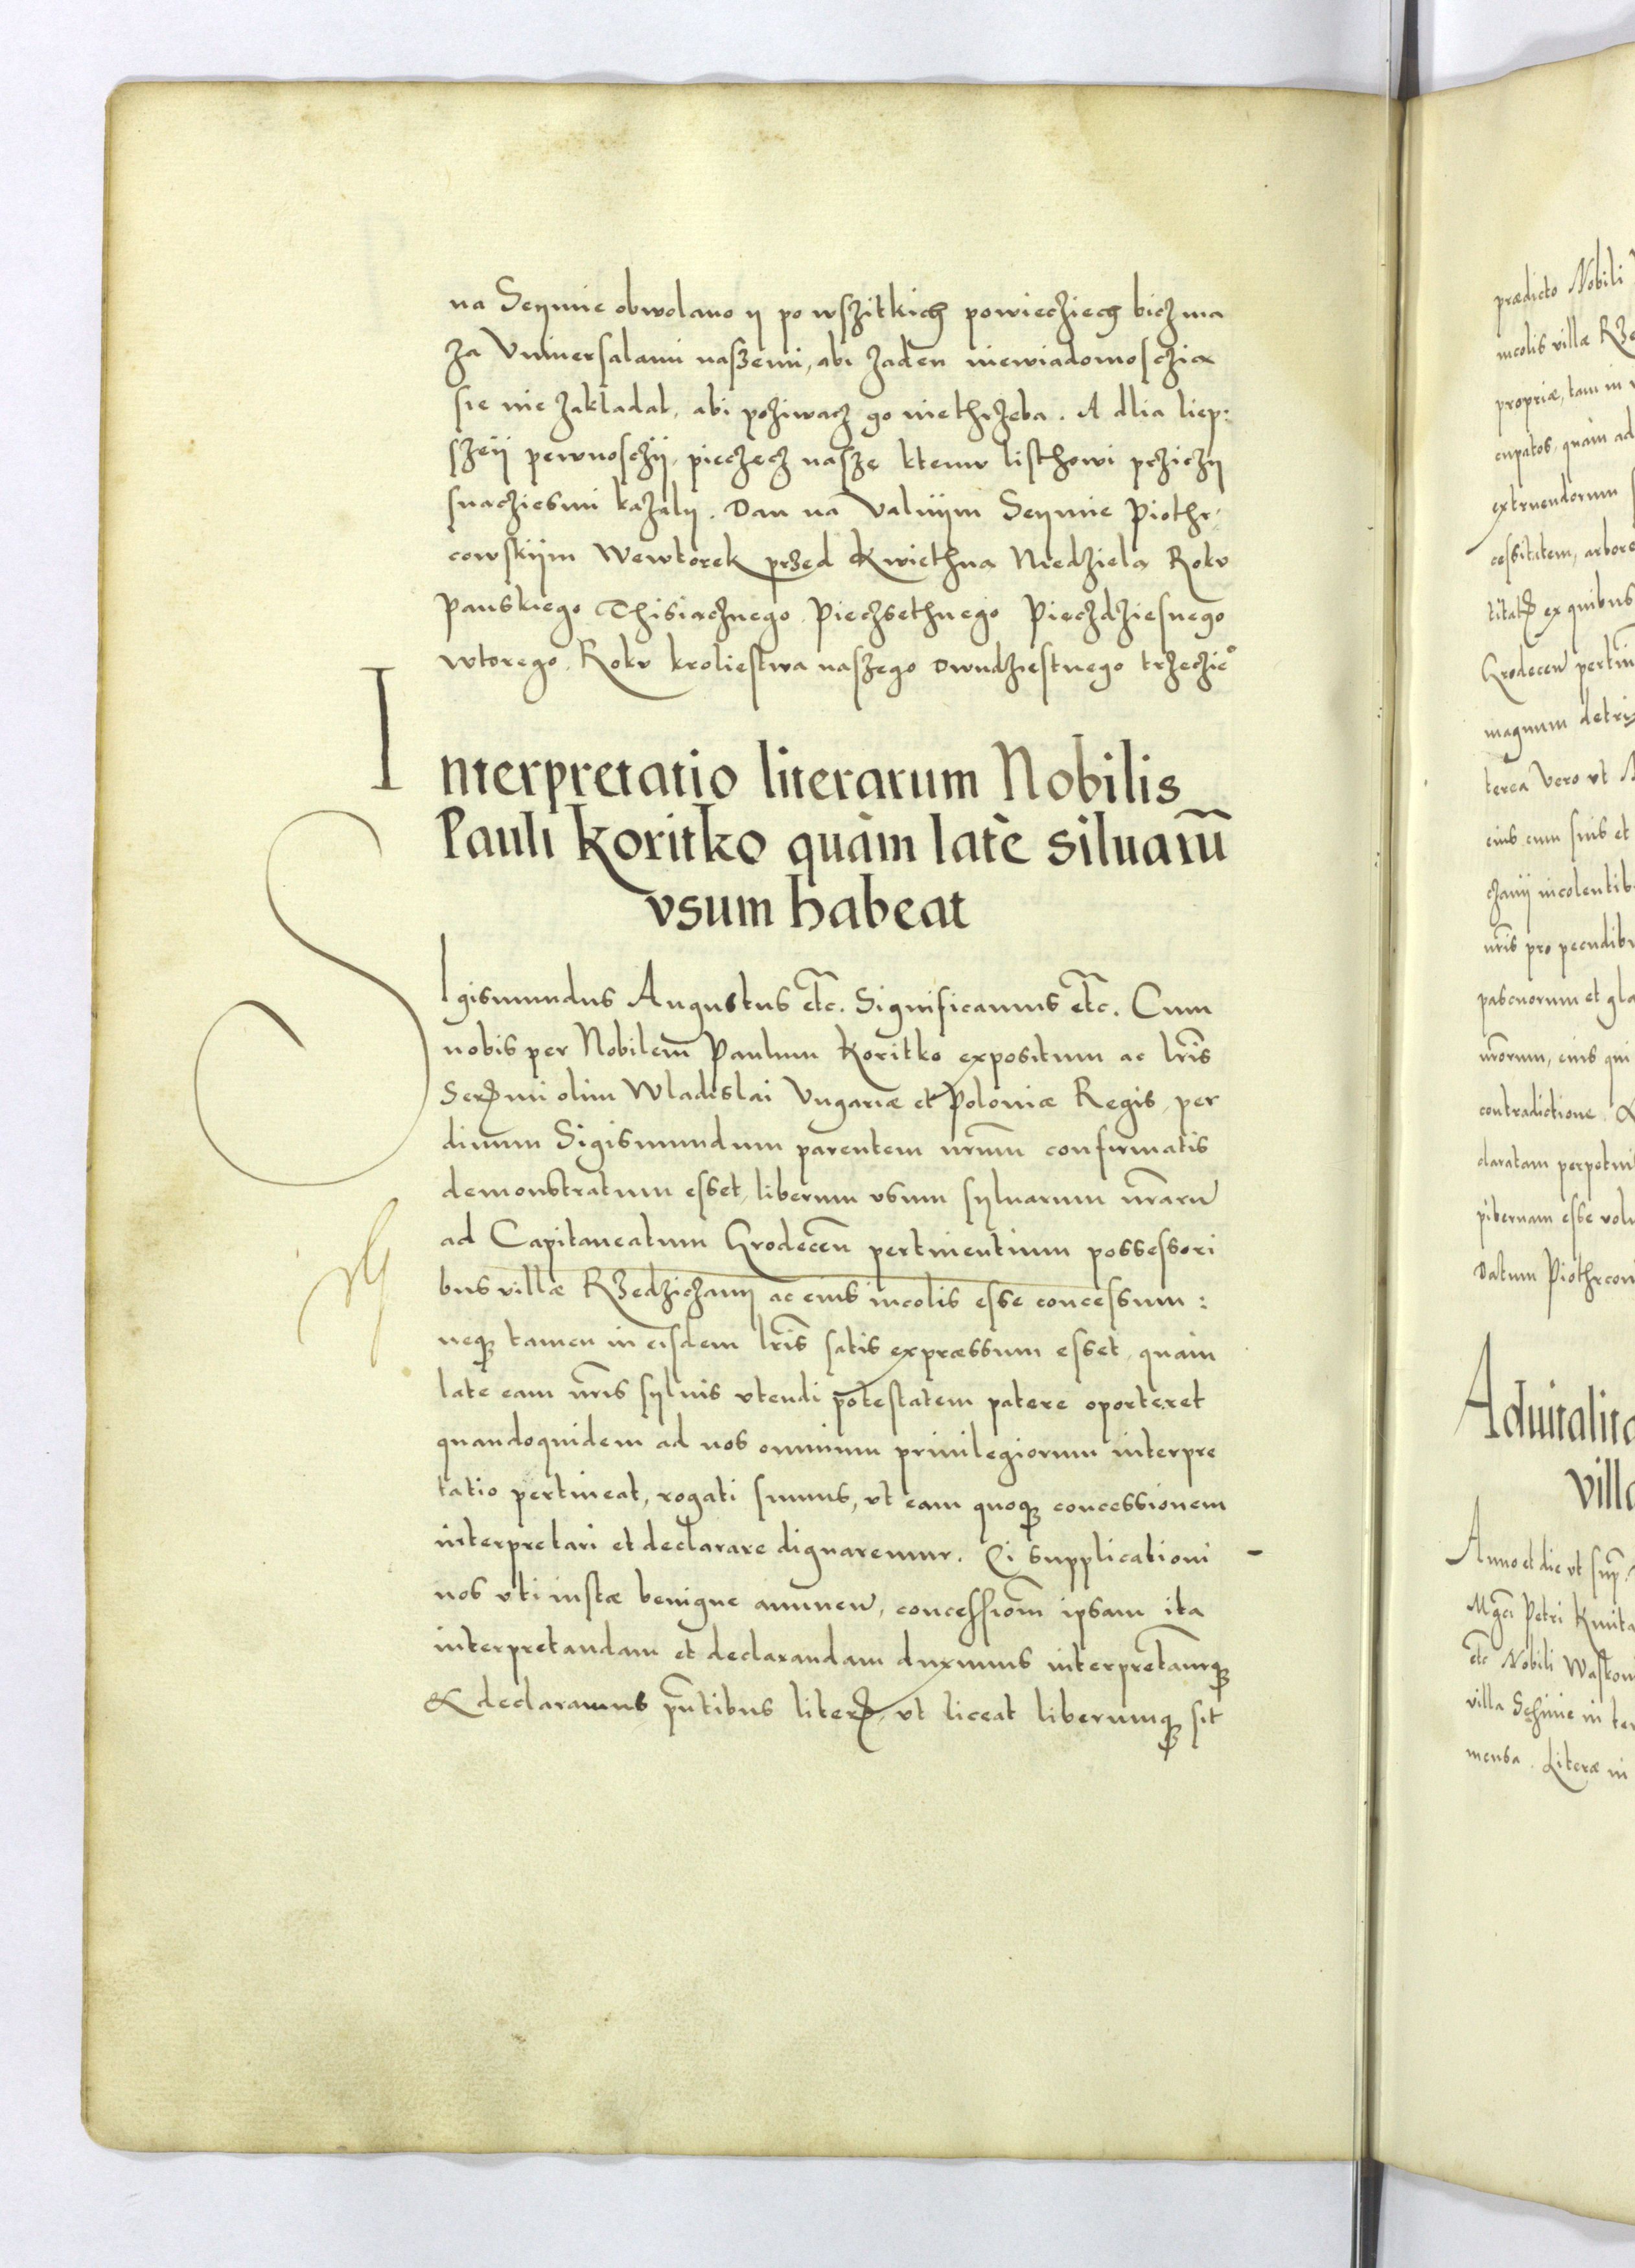 na Seymie obwolano y po wszitkich powiecziech bicz ma
za Vniuersalami naszemi, abi zaden niewiadomosczia
sie nie zakładał, abi poziwacz go niethrzeba. A dlia liep:
szeÿ pewnosczÿ, pieczecz nasze ktemv listhowi prziczy
snacziesmi kazaly. Dan na Valnÿm Seymie Piothr,
cowskÿm Wewtorek przed Kwiethna Niedziela Rokv
Panskiego Thisiacznego Pieczsethnego Pieczdziesnego
wtorego. Rokv kroliestwa naszego Dwudziestnego trzeczie°
Interpretatio literarum Nobilis
Pauli Koritko quàm latè siluarũ
vsum habeat
Sigismundus Augustus etc̃. Significamus etc̃. Cum
nobis per Nobilem Paulum Koritko expositum ac lr̃is
Serꝭmi olim Wladislai Vngariæ et Poloniæ Regis, per
diuum Sigismundum parentem nr̃um confirmatis
demonstratum esset, liberum vsum syluarum nr̃arũ
ad Capitaneatum Grodecen̄ pertinentium possessori
bus villæ Rzedziczany ac eius incolis esse concessum:
neqꝫ tamen in eisdem lr̃is satis expræssum esset, quam
late eam nr̃is syluis vtendi potestatem patere oporteret
quandoquidem ad nos omnium priuilegiorum interpre
tatio pertineat, rogati sumus, vt eam quoqꝫ concessionem
interpretari et declarare dignaremur. Ei supplicationi
nos vti iustæ benigne annuen̄, concessiom̃ ipsam ita
interpretandam et declarandam duximus interpretamurqꝫ
& declaramus pñtibus literꝭ, vt liceat liberumqꝫ sit
prædicto Nobili
incolis villæ Rze
propriæ, tam in
cupatos, quàm ad
extruendorum
cessitatem, arbore
titatꝭ ex quibus
Grodecen̄ pertin
magnum detri
terea vero vt
eius cum suis et
czany incolentib
nr̃is pro pecudib
pascuorum et gla
nr̃orum, eius qui
contradictione. &
claratam perpetui
pibernam esse volu
Datum Piothrcou
Aduitalita
villa
Anno et die vt sup̃.
Mgc̃i Petri Kmita
etc̃ Nobili Waskow
villa Sehinie in ter
mensa. Literæ in